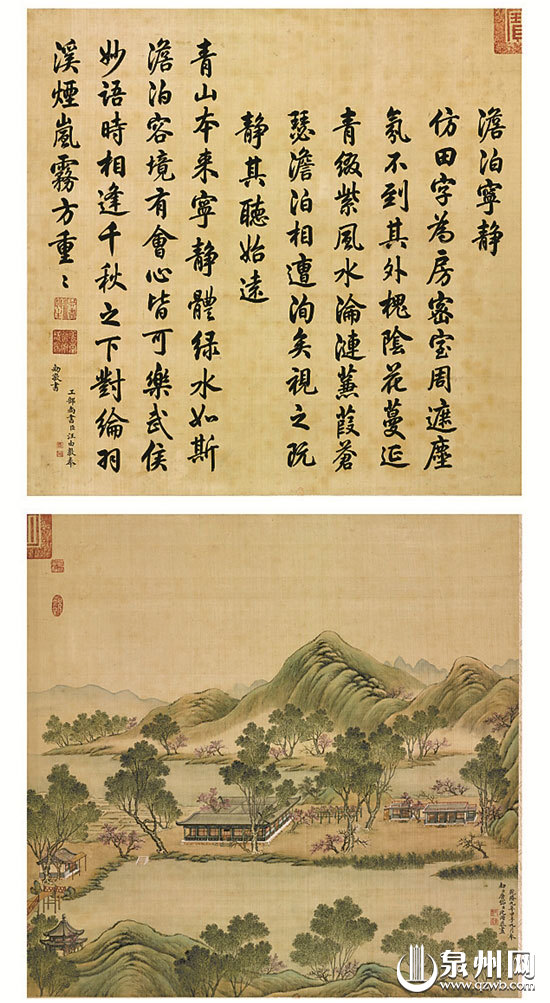 澹泊寧静
仿田字為房密室周遮塵
氛不到其外槐陰花蔓延
青綴紫風水淪漣蒹葭蒼
瑟澹泊相遭洵矣視之既
静其聽始遠
青山本来寧静體绿水如斯
澹泊容境有會心皆可樂武侯
妙語時相逢千秋之下對綸羽
溪煙嵐霧方重〻
工部尚書臣汪由敦奉
勅敬書
泉州网
www.qzwb.com